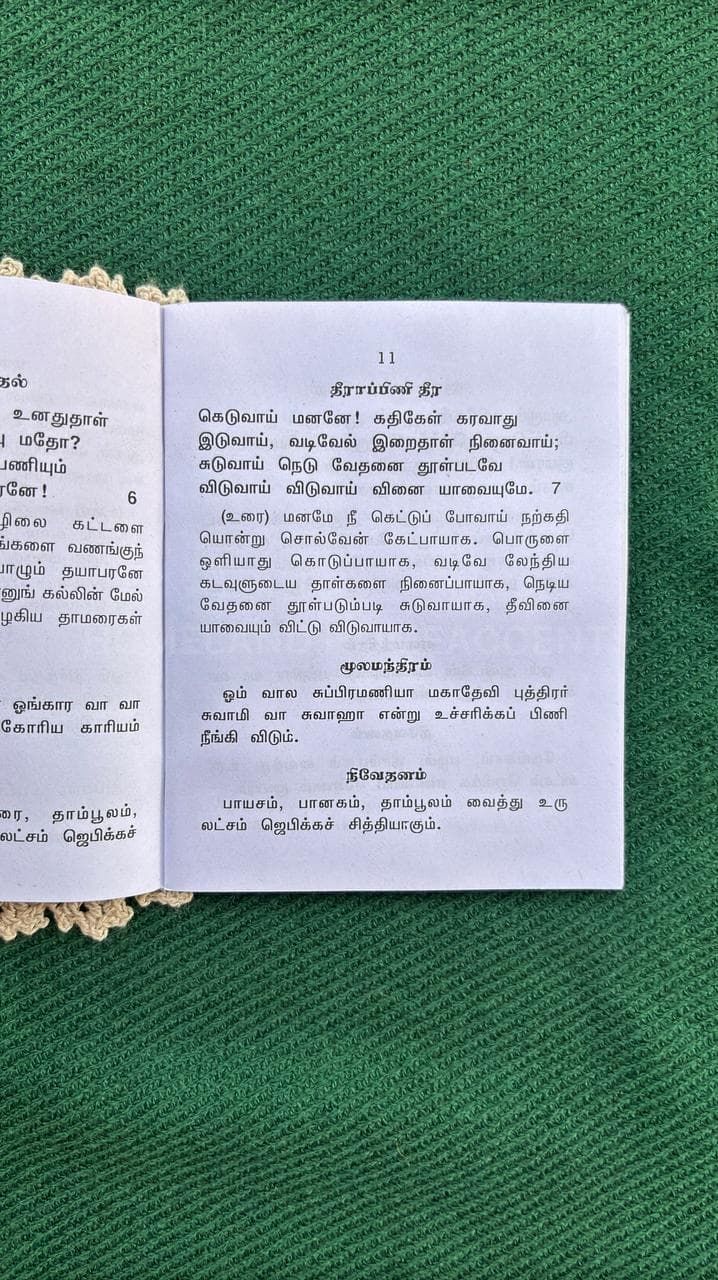 தல்
உனதுதாள்
மதோ?
பணியும்
ரனே! 6
ழிலை கட்டளை
ங்களை வணங்குந்
பாழும் தயாபரனே
னுங் கல்லின் மேல்
ழகிய தாமரைகள்
ஓங்கார வா வா
கோரிய காரியம்
ரை, தாம்பூலம்,
லட்சம் ஜெபிக்கச்
11
தீராப்பிணி தீர
கெடுவாய் மனனே! கதிகேள் கரவாது
இடுவாய், வடிவேல் இறைதாள் நினைவாய்;
சுடுவாய் நெடு வேதனை தூள்படவே
விடுவாய் விடுவாய் வினை யாவையுமே. 7
(உரை) மனமே நீ கெட்டுப் போவாய் நற்கதி
யொன்று சொல்வேன் கேட்பாயாக. பொருளை
ஒளியாது கொடுப்பாயாக, வடிவே லேந்திய
கடவுளுடைய தாள்களை நினைப்பாயாக, நெடிய
வேதனை தூள்படும்படி சுடுவாயாக, தீவினை
யாவையும் விட்டு விடுவாயாக.
மூலமந்திரம்
ஓம் வால சுப்பிரமணியா மகாதேவி புத்திரர்
சுவாமி வா சுவாஹா என்று உச்சரிக்கப் பிணி
நீங்கி விடும்.
நிவேதனம்
பாயசம், பானகம், தாம்பூலம் வைத்து உரு
லட்சம் ஜெபிக்கச் சித்தியாகும்.